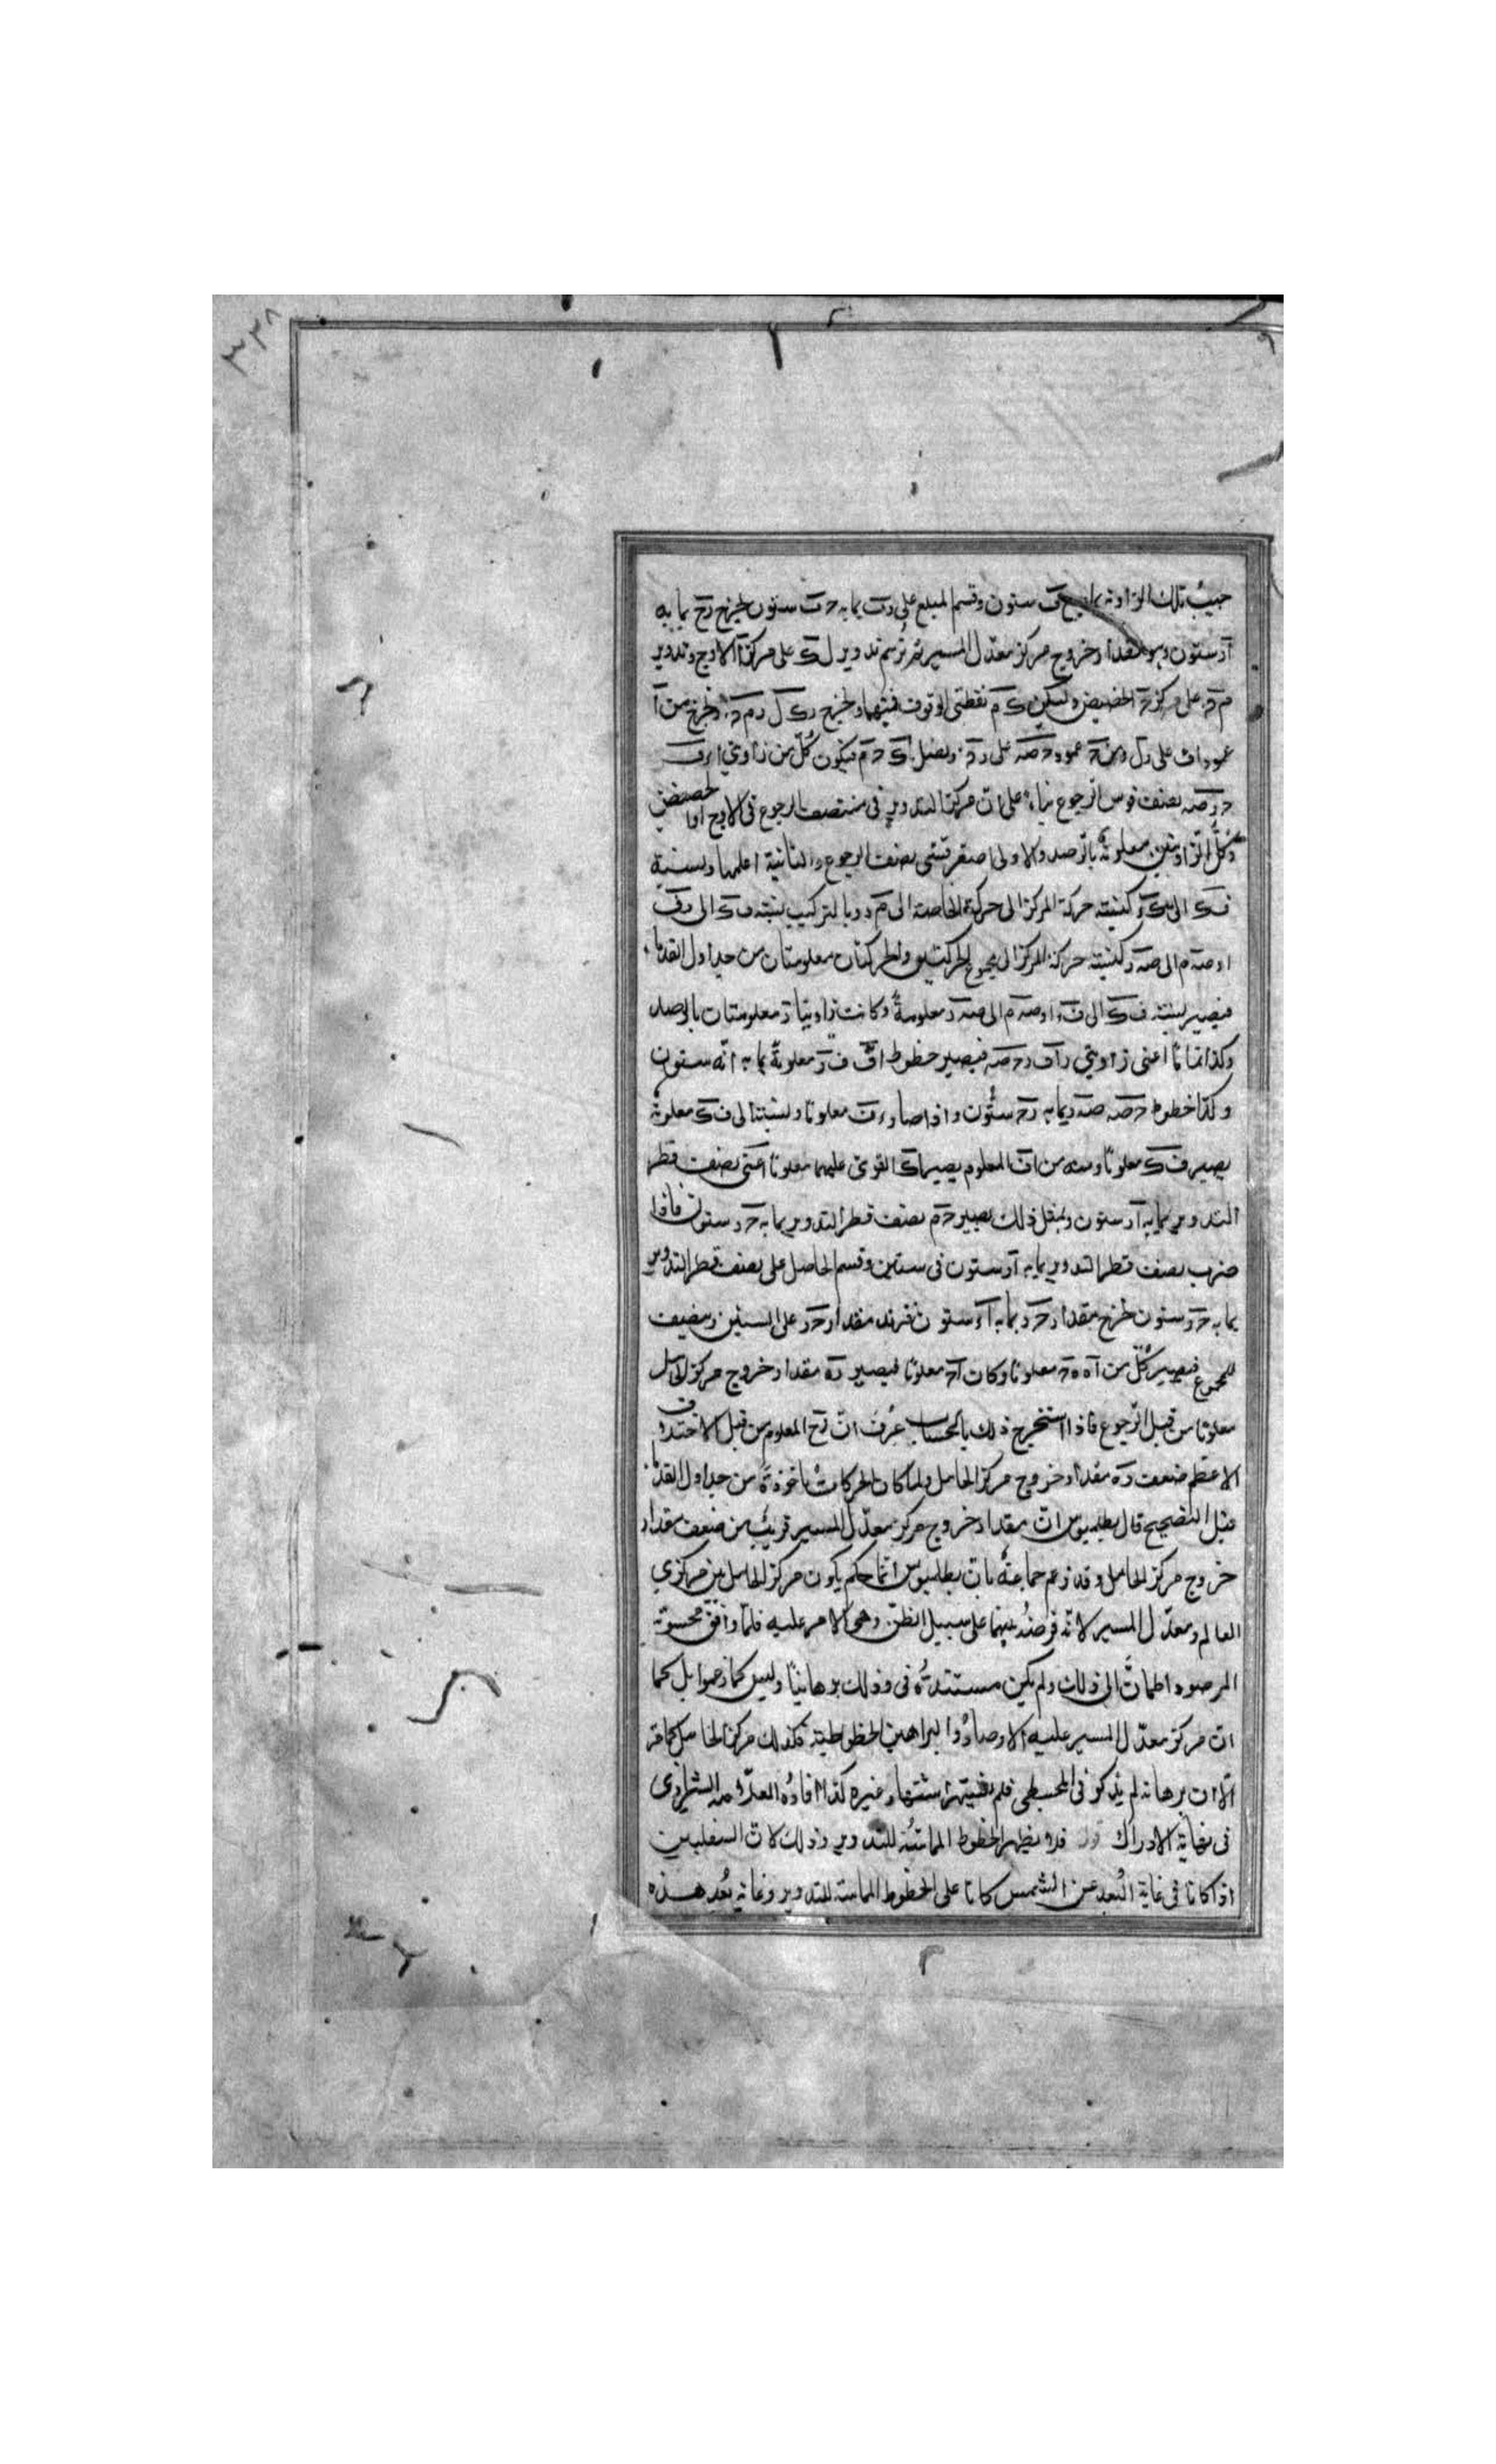 ٣٣٨
جيب تلك الزاوية بما به ستون وقسم المبلغ على رت بما به حت ستون ليخرج رح بما به
آر ستون وهو مقدار خروج مركز معدل المسير ثم نرسم تدوير ل ك على مركز آ الاوج وتدوير
م على مركز ح الحضيض وليكن ك م نقطتي الوقوف فيهما ولنخرج ر ك ل ر م ونخرج من آ
عمود اف على رل ومن ح عمود ح صه على ونصل اك ح م فيكون كل من زاويتي ارف
ح ر صه نصف قوس الرجوع بناء على ان مركز التدوير في منتصف الرجوع في الاوج او الحضيض
وكل الزاويتين معلومة بالرصد والاولى اصغر قسي نصف الرجوع والثانية اعظمها ونسبة
ف ك الى ك ر كنسبة حركة المركز الى حركة الخاصة الى م ر وبالتركيب نسبة ف ك الى رف
او صه م الى صه ر كنسبة حركة المركز الى مجموع الحركتين والحركتان معلومتان من جداول القدماء
فيصير نسبة ف ك الى ف ر او صه م الى صه ر معلومة وكانت زاويتا ر معلومتان بالرصد
وكذا تماماتا اعني زاويتي راف رح صه فيصير خطوط اف ف ر معلومة بما به ار ستون
وكذا خطوط ح صه صه ر بما به رح ستون واذا صار رف معلوما ونسبته الى ف ك معلومة
يصير ف ك معلوما ومنه من اف المعلوم يصير اك القوي عليهما معلوما اعني نصف قطر
التدوير بما به آر ستون وبمثل ذلك يصير ح م نصف قطر التدوير بما به ح ر ستون فاذا
ضرب نصف قطر التدوير بما به آر ستون في ستين وقسم الحاصل على نصف قطر التدوير
بما به ح ر ستون خرج مقدار ح ر بما به آر ستون فنزيد مقدار ح ر على الستين وننصف
المجموع فيصير كل من آه ه ح معلوما وكان آر معلوما فيصير ره مقدار خروج مركز الحامل
معلوما من قبل الرجوع فاذا استخرج ذلك بالحساب عرف ان رح المعلوم من قبل الاختلاف
الاعظم ضعف ره مقدار خروج مركز الحامل ولما كان الحركات ماخوذة من جداول القدماء
قبل التصحيح قال بطلميوس ان مقدار خروج مركز معدل المسير قريب من ضعف مقدار
خروج مركز الحامل وقد زعم جماعة بان بطلميوس انما حكم بكون مركز الحامل بين مركزي
العالم ومعدل المسير لانه فرضه بينهما على سبيل الظن وهي الامر عليه فلما وافق محسوبة
المرصود اطمان الى ذلك ولم يكن مستنده في ذلك برهانيا وليس كما زعموا بل كما
ان مركز معدل المسير عليه الارصاد والبراهين الخطوطية فكذلك مركز الحامل كما مر
الا ان برهانه لم يذكر في المجسطي فلم يشتهر اشتهار غيره كذا افاده العلامه الشيرازي
في نهاية الادراك قوله يظهر الخطوط المماسة للتدوير وذلك لان السفليين
اذا كانا في غاية البعد عن الشمس كانا على الخطوط المماسة للتدوير وغاية بعد هذه